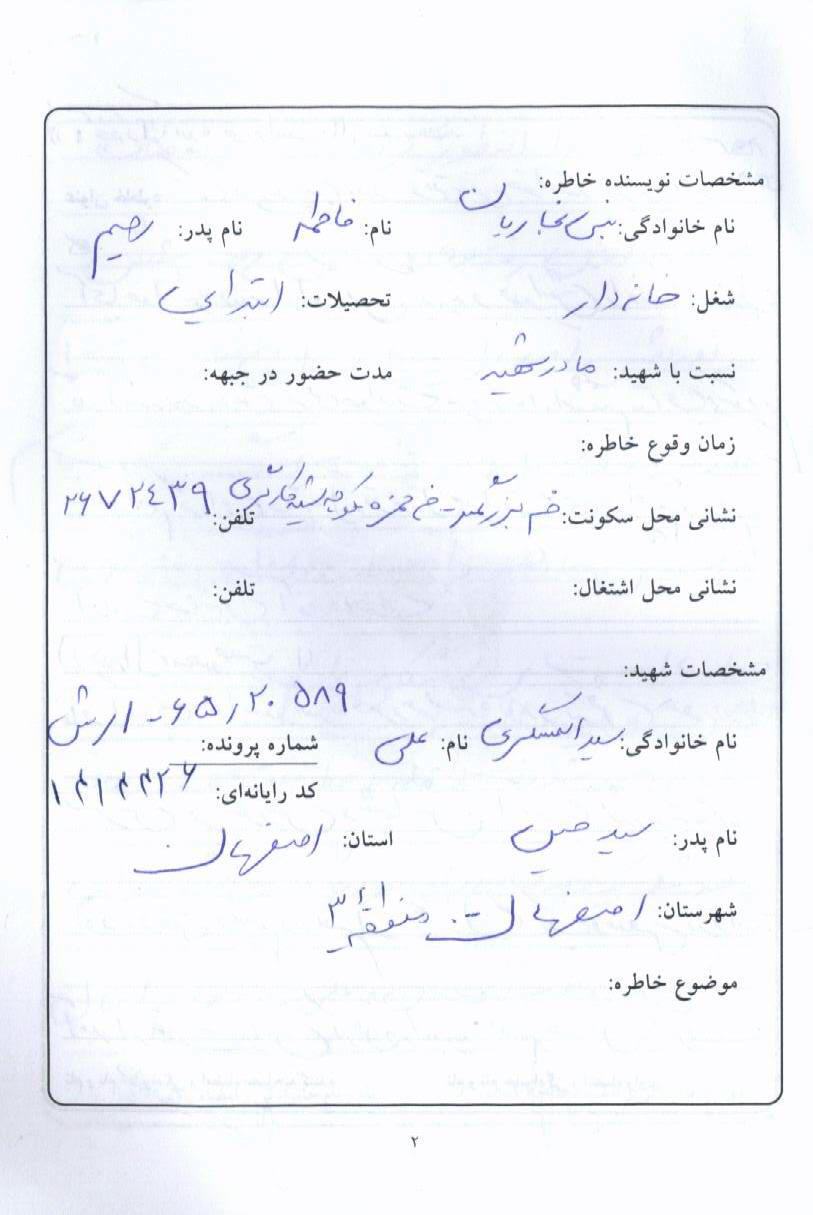 مشخصات نویسنده خاطره:
نام خانوادگی: نجاریان نام: فاطمه نام پدر: رحیم
شغل: خانه دار تحصیلات: ابتدایی
نسبت با شهید: مادر شهید مدت حضور در جبهه:
زمان وقوع خاطره:
نشانی محل سکونت: خ حمزه کوچه شهید تلفن: ۲۶۷۲۴۳۹
نشانی محل اشتغال: تلفن:
مشخصات شهید:
نام خانوادگی: سید العسگری نام: علی شماره پرونده: ۶۵٫۲۰۵۸۹ - ارتش
کد رایانه‌ای: ۱۴۱۴۴۲۶
نام پدر: سید حسن استان: اصفهان
شهرستان: اصفهان منطقه ۳
موضوع خاطره:
۲